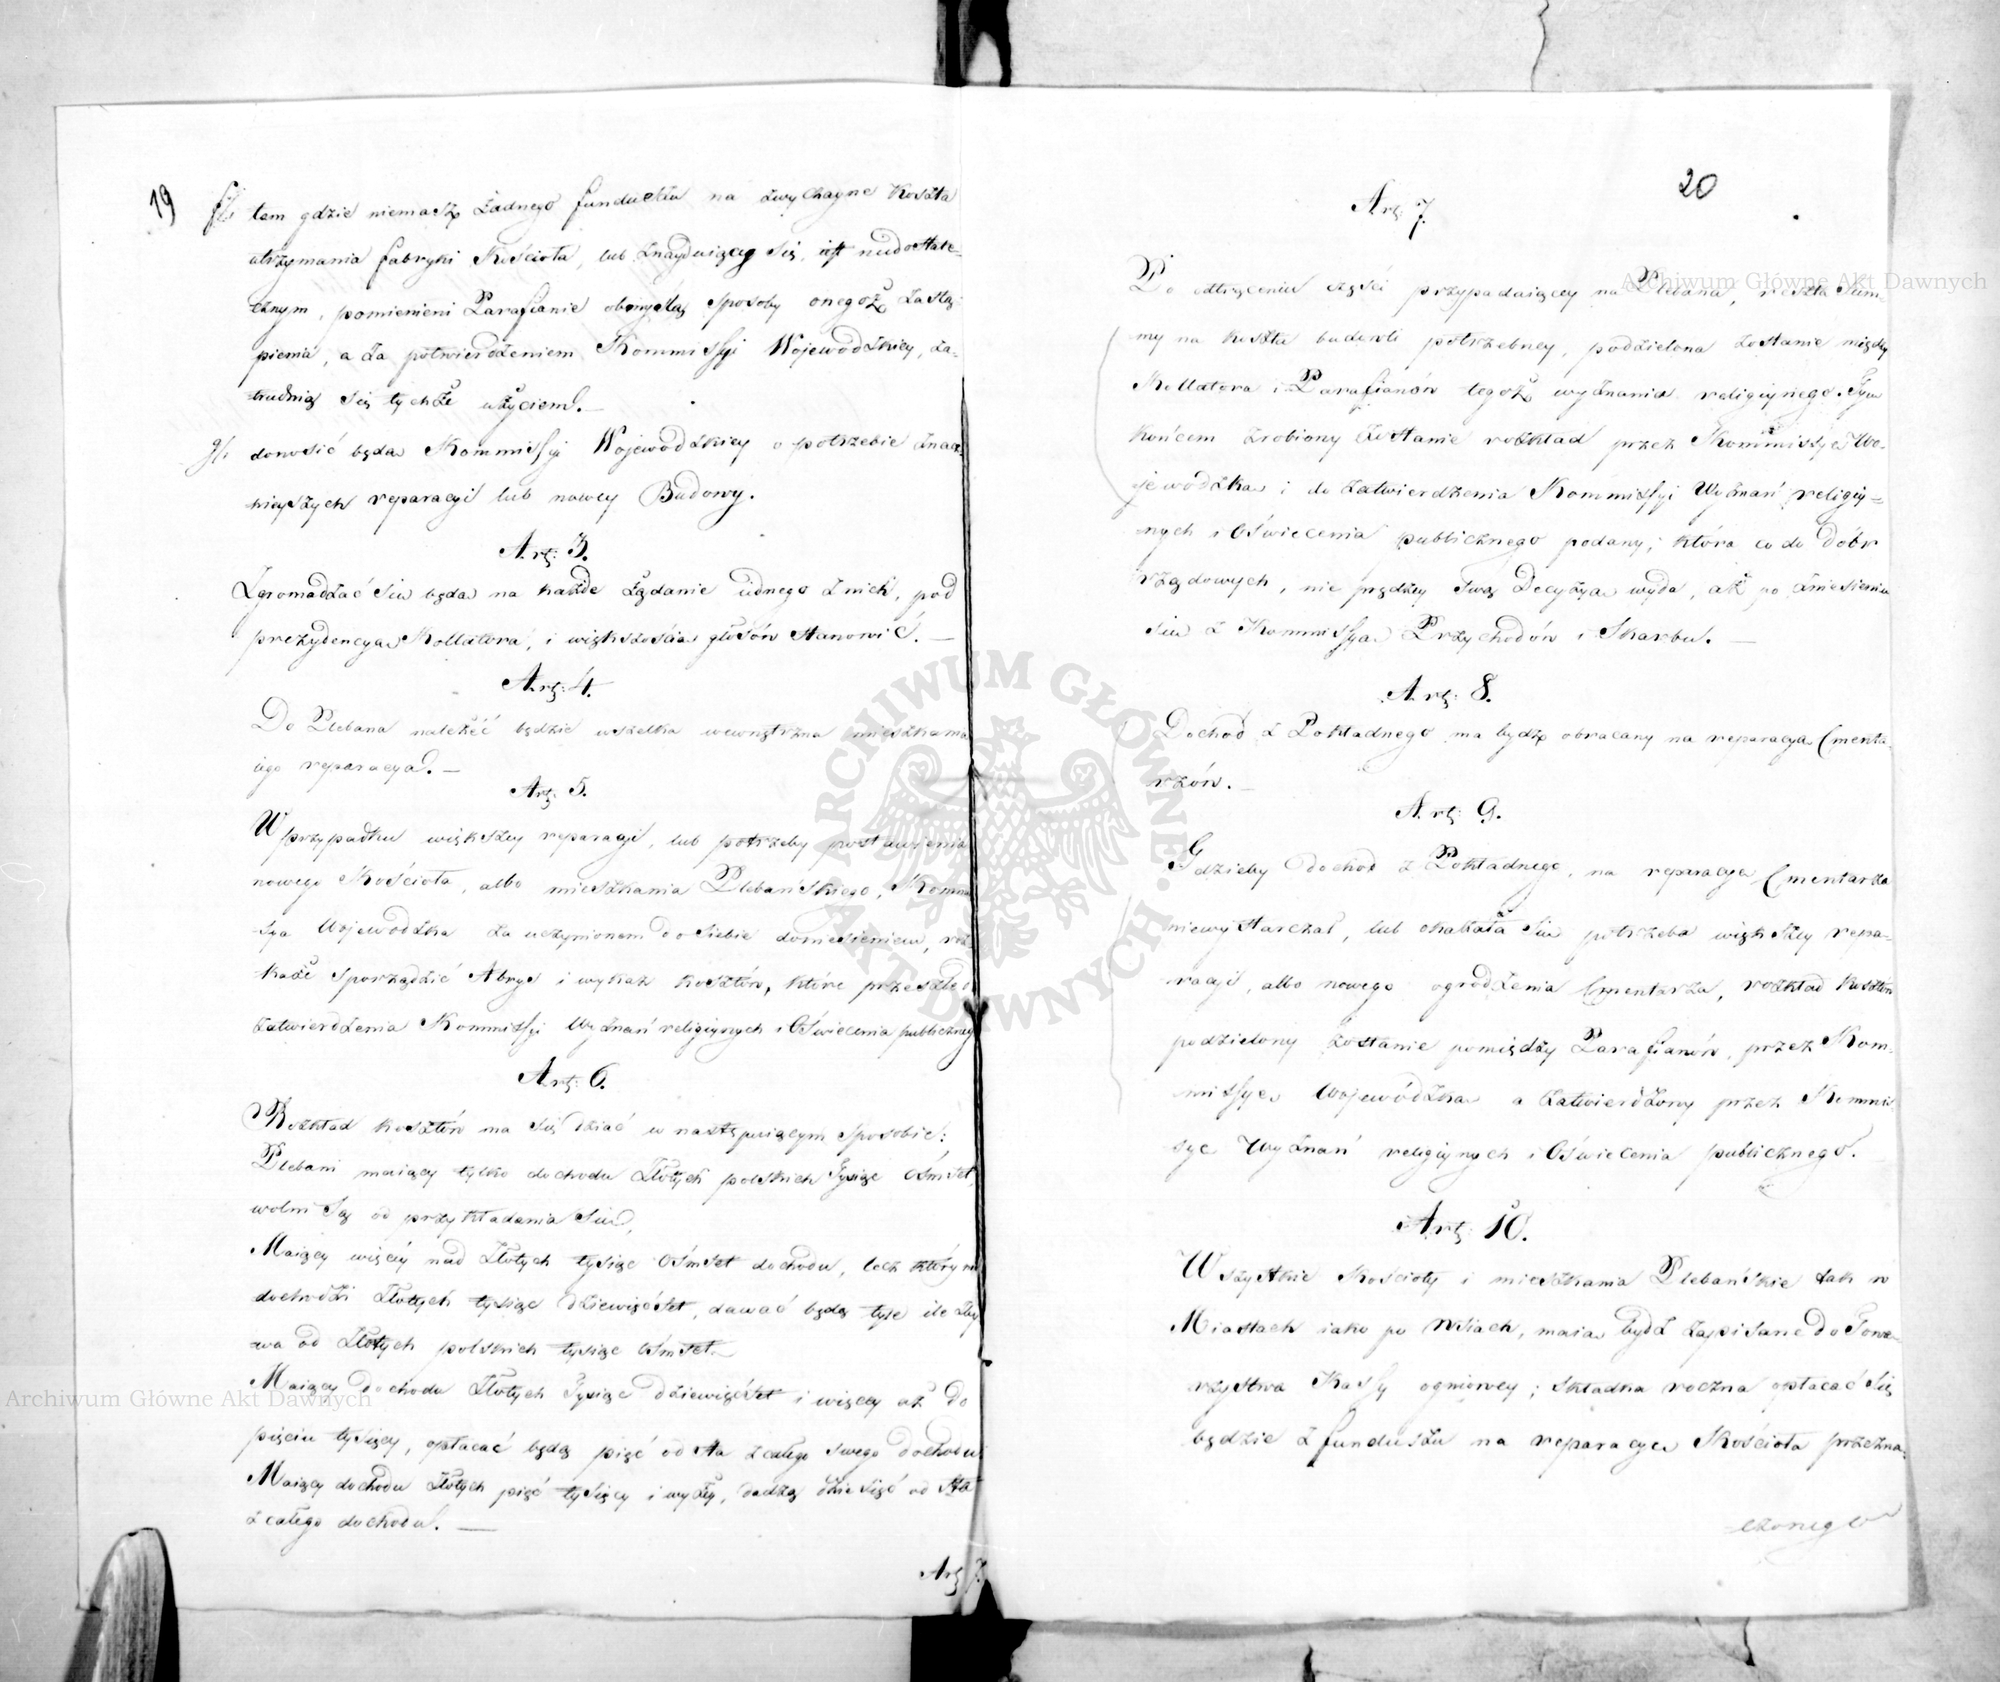 19
f/. tam gdzie niemasz żadnego funduszu na zwyczayne koszta
utrzymania fabryki Kościoła, lub znayduiący się, iest niedostate-
cznym, pomienieni Parafianie obmyślą sposoby onegoż zastą-
pienia, a za potwierdzeniem Kommissyi Wojewódzkiey, za-
trudnią się tychże użyciem.—
g/. donosić będą Kommissyi Wojewódzkiey o potrzebie znacz-
nieyszych reparacyi lub nowey Budowy.
Art: 3.
Zgromadzać się będą na każde żądanie iednego z nich, pod
prezydencyą Kollatora, i większością głosów stanowić.—
Art: 4.
Do Plebana należeć będzie wszelka wewnętrzna mieszkania
iego reparacya.—
Art: 5.
W przypadku większey reparacyi, lub potrzeby postawienia
nowego Kościoła, albo mieszkania Plebańskiego, Kommis
sya Wojewódzka za uczynionem do siebie doniesieniem, roz
każe sporządzić Abrys i wykaz kosztów, które prześle do
zatwierdzenia Kommissyi Wyznań religiynych i Oświecenia publiczneg
Art: 6.
Rozkład kosztów ma się dziać w następuiącym sposobie:
Plebani maiący tylko dochodu Złotych polskich Tysiąc Ośmset,
wolni są od przykładania się,
Maiący więcéy nad Złotych tysiąc Ośmset dochodu, lecz który nie
dochodzi Złotych tysiąc dziewięćset, dawać będą tyle ile zby
wa od Złotych polskich tysiąc Ośmset.
Maiący dochodu Złotych Tysiąc dziewięćset i więcey aż do
pięciu tysięcy, opłacać będą pięć od sta z całego swego dochodu
Maiący dochodu Złotych pięć tysięcy i wyżey, dadzą dziesięć od sta
z całego dochodu.—
Art 7.
20
Art 7.
Po odtrąceniu części przypadaiącey na Plebana, reszta Sum-
my na koszta budowli potrzebney, podzielona zostanie między
Kollatora i Parafianów tegoż wyznania religiynego. Tym
końcem zrobiony zostanie rozkład przez Kommissyą Wo-
jewódzką i do zatwierdzenia Kommissyi Wyznań religiy-
nych i Oświecenia publicznego podany; która co do dóbr
rządowych, nie prędzey swą Decyzyą wyda, aż po zniesieniu
się z Kommissyą Przychodów i Skarbu.—
Art: 8.
Dochód z Pokładnego ma bydź obracany na reparacyą Cmenta-
rzów.—
Art: 9.
Gdzieby dochod z Pokładnego, na reparacyą Cmentarza
niewystarczał, lub okazała się potrzeba większey repa-
racyi, albo nowego ogrodzenia Cmentarza, rozkład kosztów
podzielony zostanie pomiędzy Parafianów, przez Kom-
missyę Wojewódzką a zatwierdzony przez Kommis
syę Wyznań religiynych i Oświecenia publicznego.
Art: 10.
Wszystkie Kościoły i mieszkania Plebańskie tak w
Miastach iako po Wsiach, maią bydź zapisane do Towa-
rzystwa Kassy ogniowey; składka roczna opłacać się
będzie z funduszu na reparacyę Kościoła przezna-
czonego
Archiwum Główne Akt Dawnych
Archiwum Główne Akt Dawnych
ARCHIWUM GŁÓWNE AKT DAWNYCH